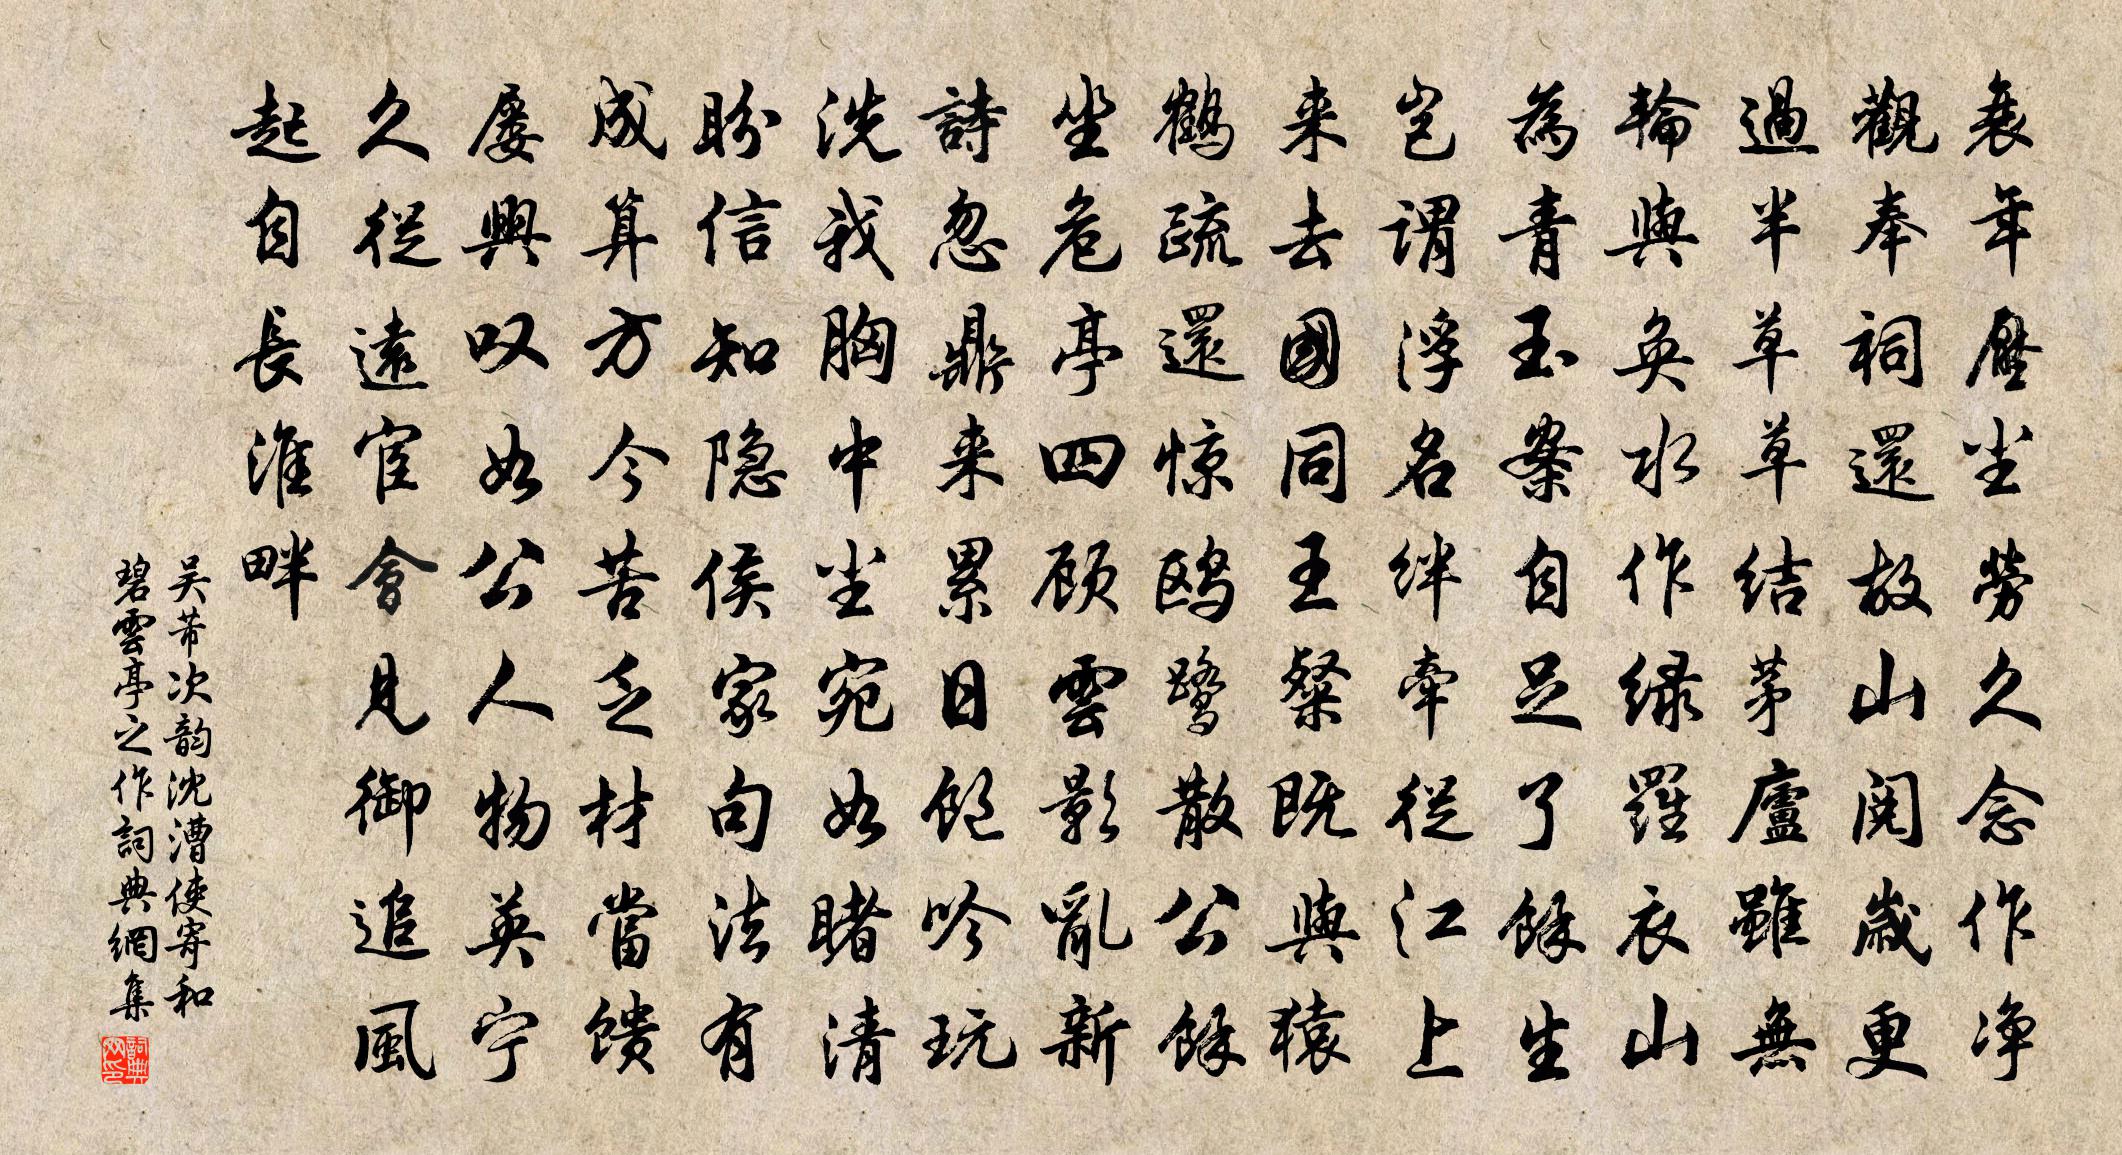 衰年壓尘勞久念作净
觀奉祠還故山閱歲更
過半草草結茅廬雖無
輪與奐水作緑羅衣山
為青玉案自足了餘生
岂謂浮名絆牽從江上
来去國同王粲既與猿
鶴疏還惊鸥鹭散公餘
坐危亭四顾雲影亂新
詩忽鼎来累日饱吟玩
洗我胸中尘宛如睹清
盼信知隐侯家句法有
成算方今苦乏材當馈
屡興叹如公人物英宁
久從遠宦會見御追風
起自長淮畔
吴芾次韵沈漕使寄和
碧雲亭之作詞典網集
詞典网印